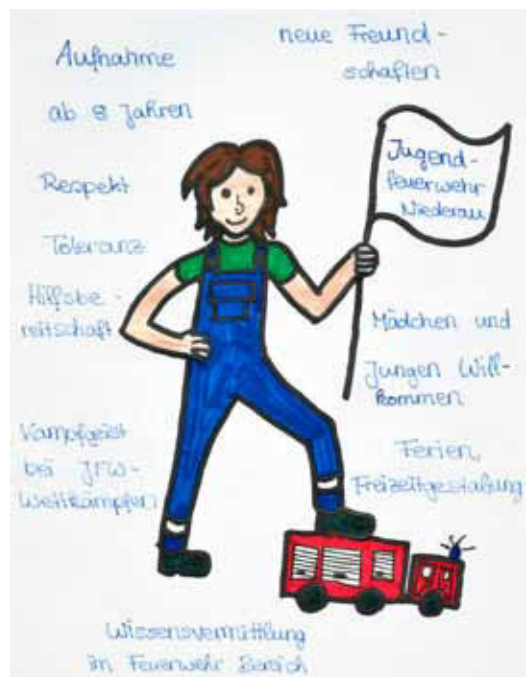 Aufnahme
ab 8 Jahren
neue Freund-
schaften
Respekt
Toleranz
Hilfsbe-
reitschaft
Kampfgeist
bei JFW-
Wettkämpfen
Jugend-
feuerwehr
Niederau
Mädchen und
Jungen Will-
kommen
Ferien,
Freizeitgestaltung
Wissensvermittlung
im Feuerwehr Bereich